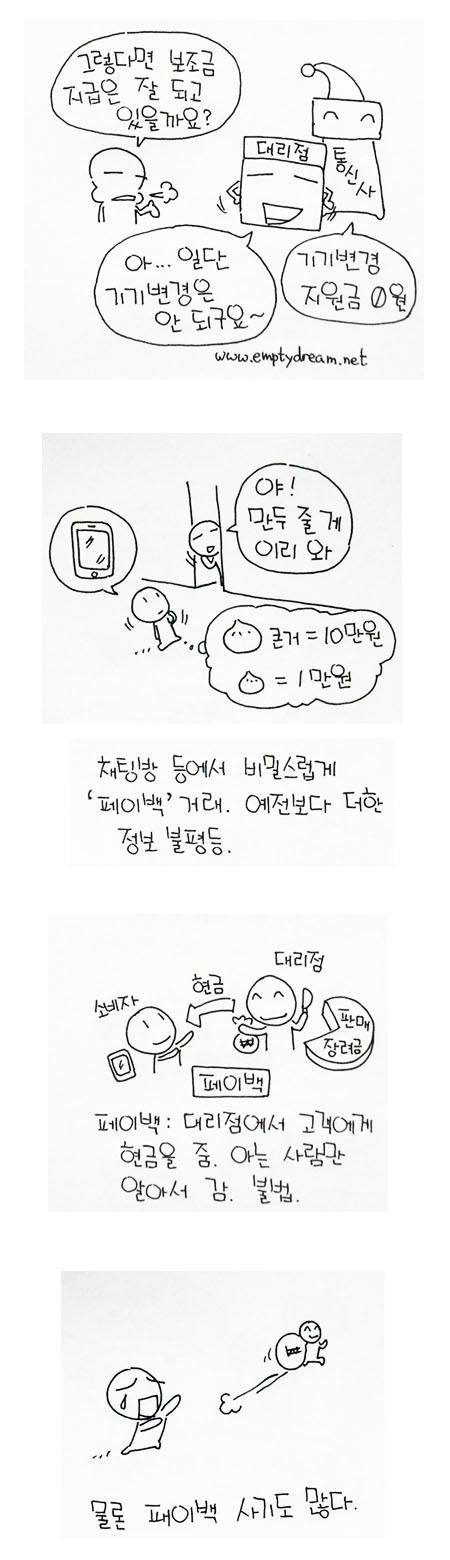 그렇다면 보조금
지급은 잘 되고
있을까요?
대리점
통신사
아... 일단
기기변경은
안 되구요~
기기변경
지원금 0원
www.emptydream.net
야!
만두 줄게
이리 와
큰거 = 10만원
= 1만원
채팅방 등에서 비밀스럽게
'페이백' 거래. 예전보다 더한
정보 불평등.
대리점
현금
소비자
판매
장려금
₩
페이백
페이백 : 대리점에서 고객에게
현금을 줌. 아는 사람만
알아서 감. 불법.
₩
물론 페이백 사기도 많다.